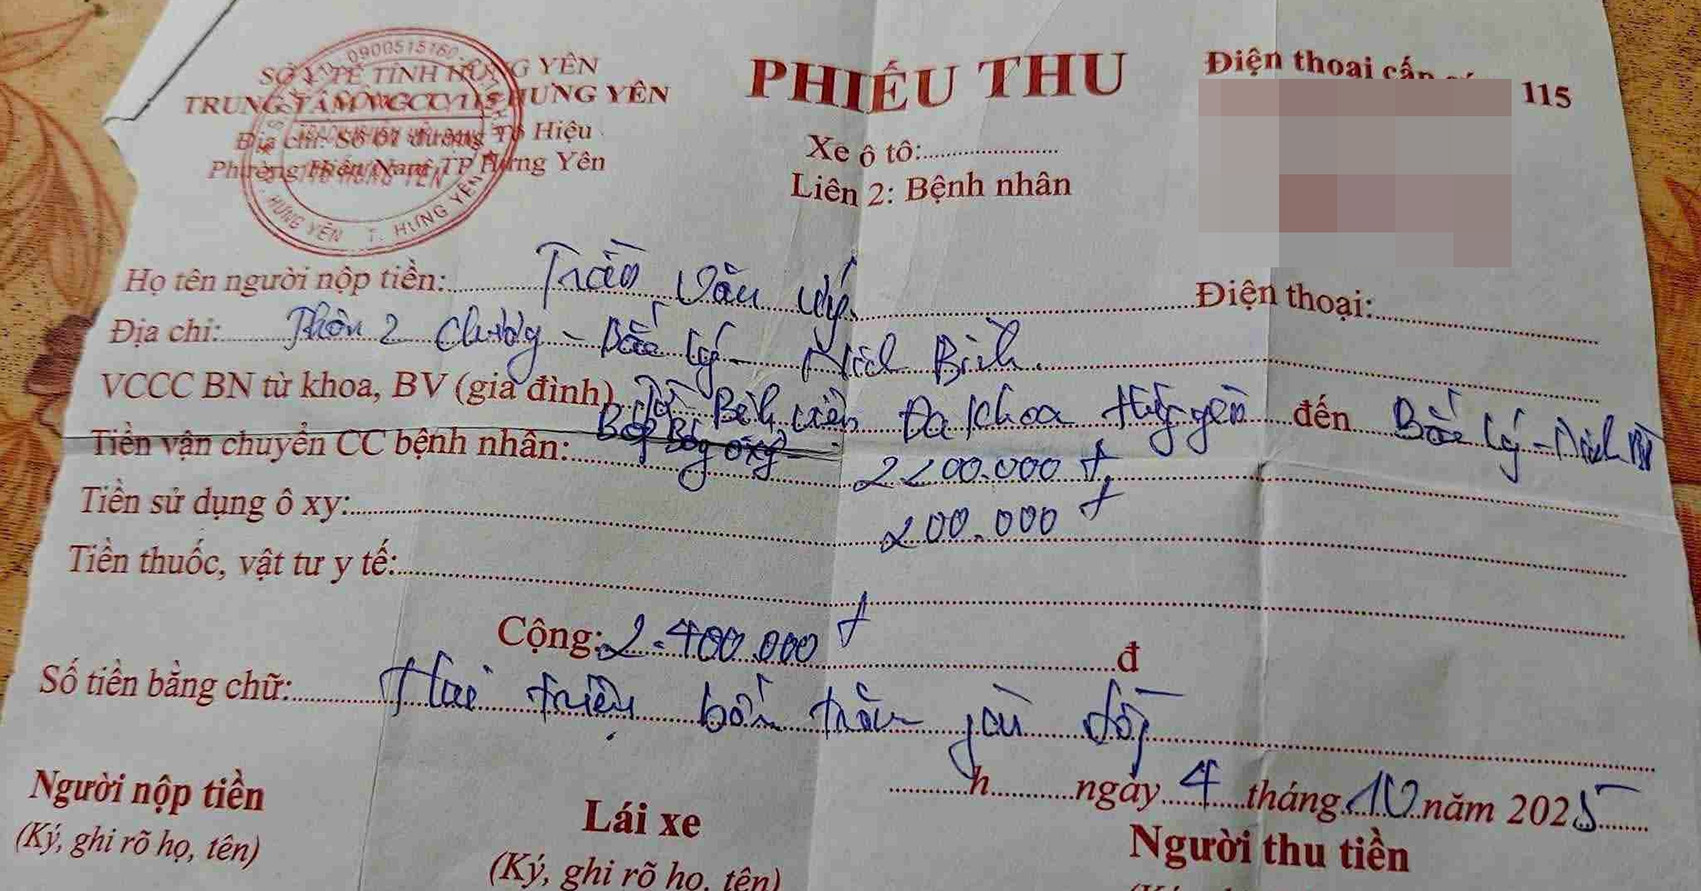 SỞ Y TẾ TỈNH HƯNG YÊN
TRUNG TÂM VCCC 115 HƯNG YÊN
Địa chỉ: Số 01 đường Tô Hiệu
Phường Hiến Nam TP Hưng Yên
0900515160
HƯNG YÊN T. HƯNG YÊN
PHIẾU THU
Xe ô tô:
Liên 2: Bệnh nhân
Điện thoại cấp 115
Họ tên người nộp tiền: Trần Văn
Điện thoại:
Địa chỉ: Thôn 2 Chương - Bắc Lý - Ninh Bình.
VCCC BN từ khoa, BV (gia đình) Từ Bệnh viện Đa khoa Hưng yên đến Bắc Lý - Ninh
Tiền vận chuyển CC bệnh nhân: Bóp Bóng oxy 2200.000 đ
Tiền sử dụng ô xy: 200.000 đ
Tiền thuốc, vật tư y tế:
Cộng: 2.400.000 đ đ
Số tiền bằng chữ: Hai triệu bốn trăm đồng
h ngày 4 tháng 10 năm 2025
Người nộp tiền
(Ký, ghi rõ họ, tên)
Lái xe
(Ký, ghi rõ họ, tên)
Người thu tiền